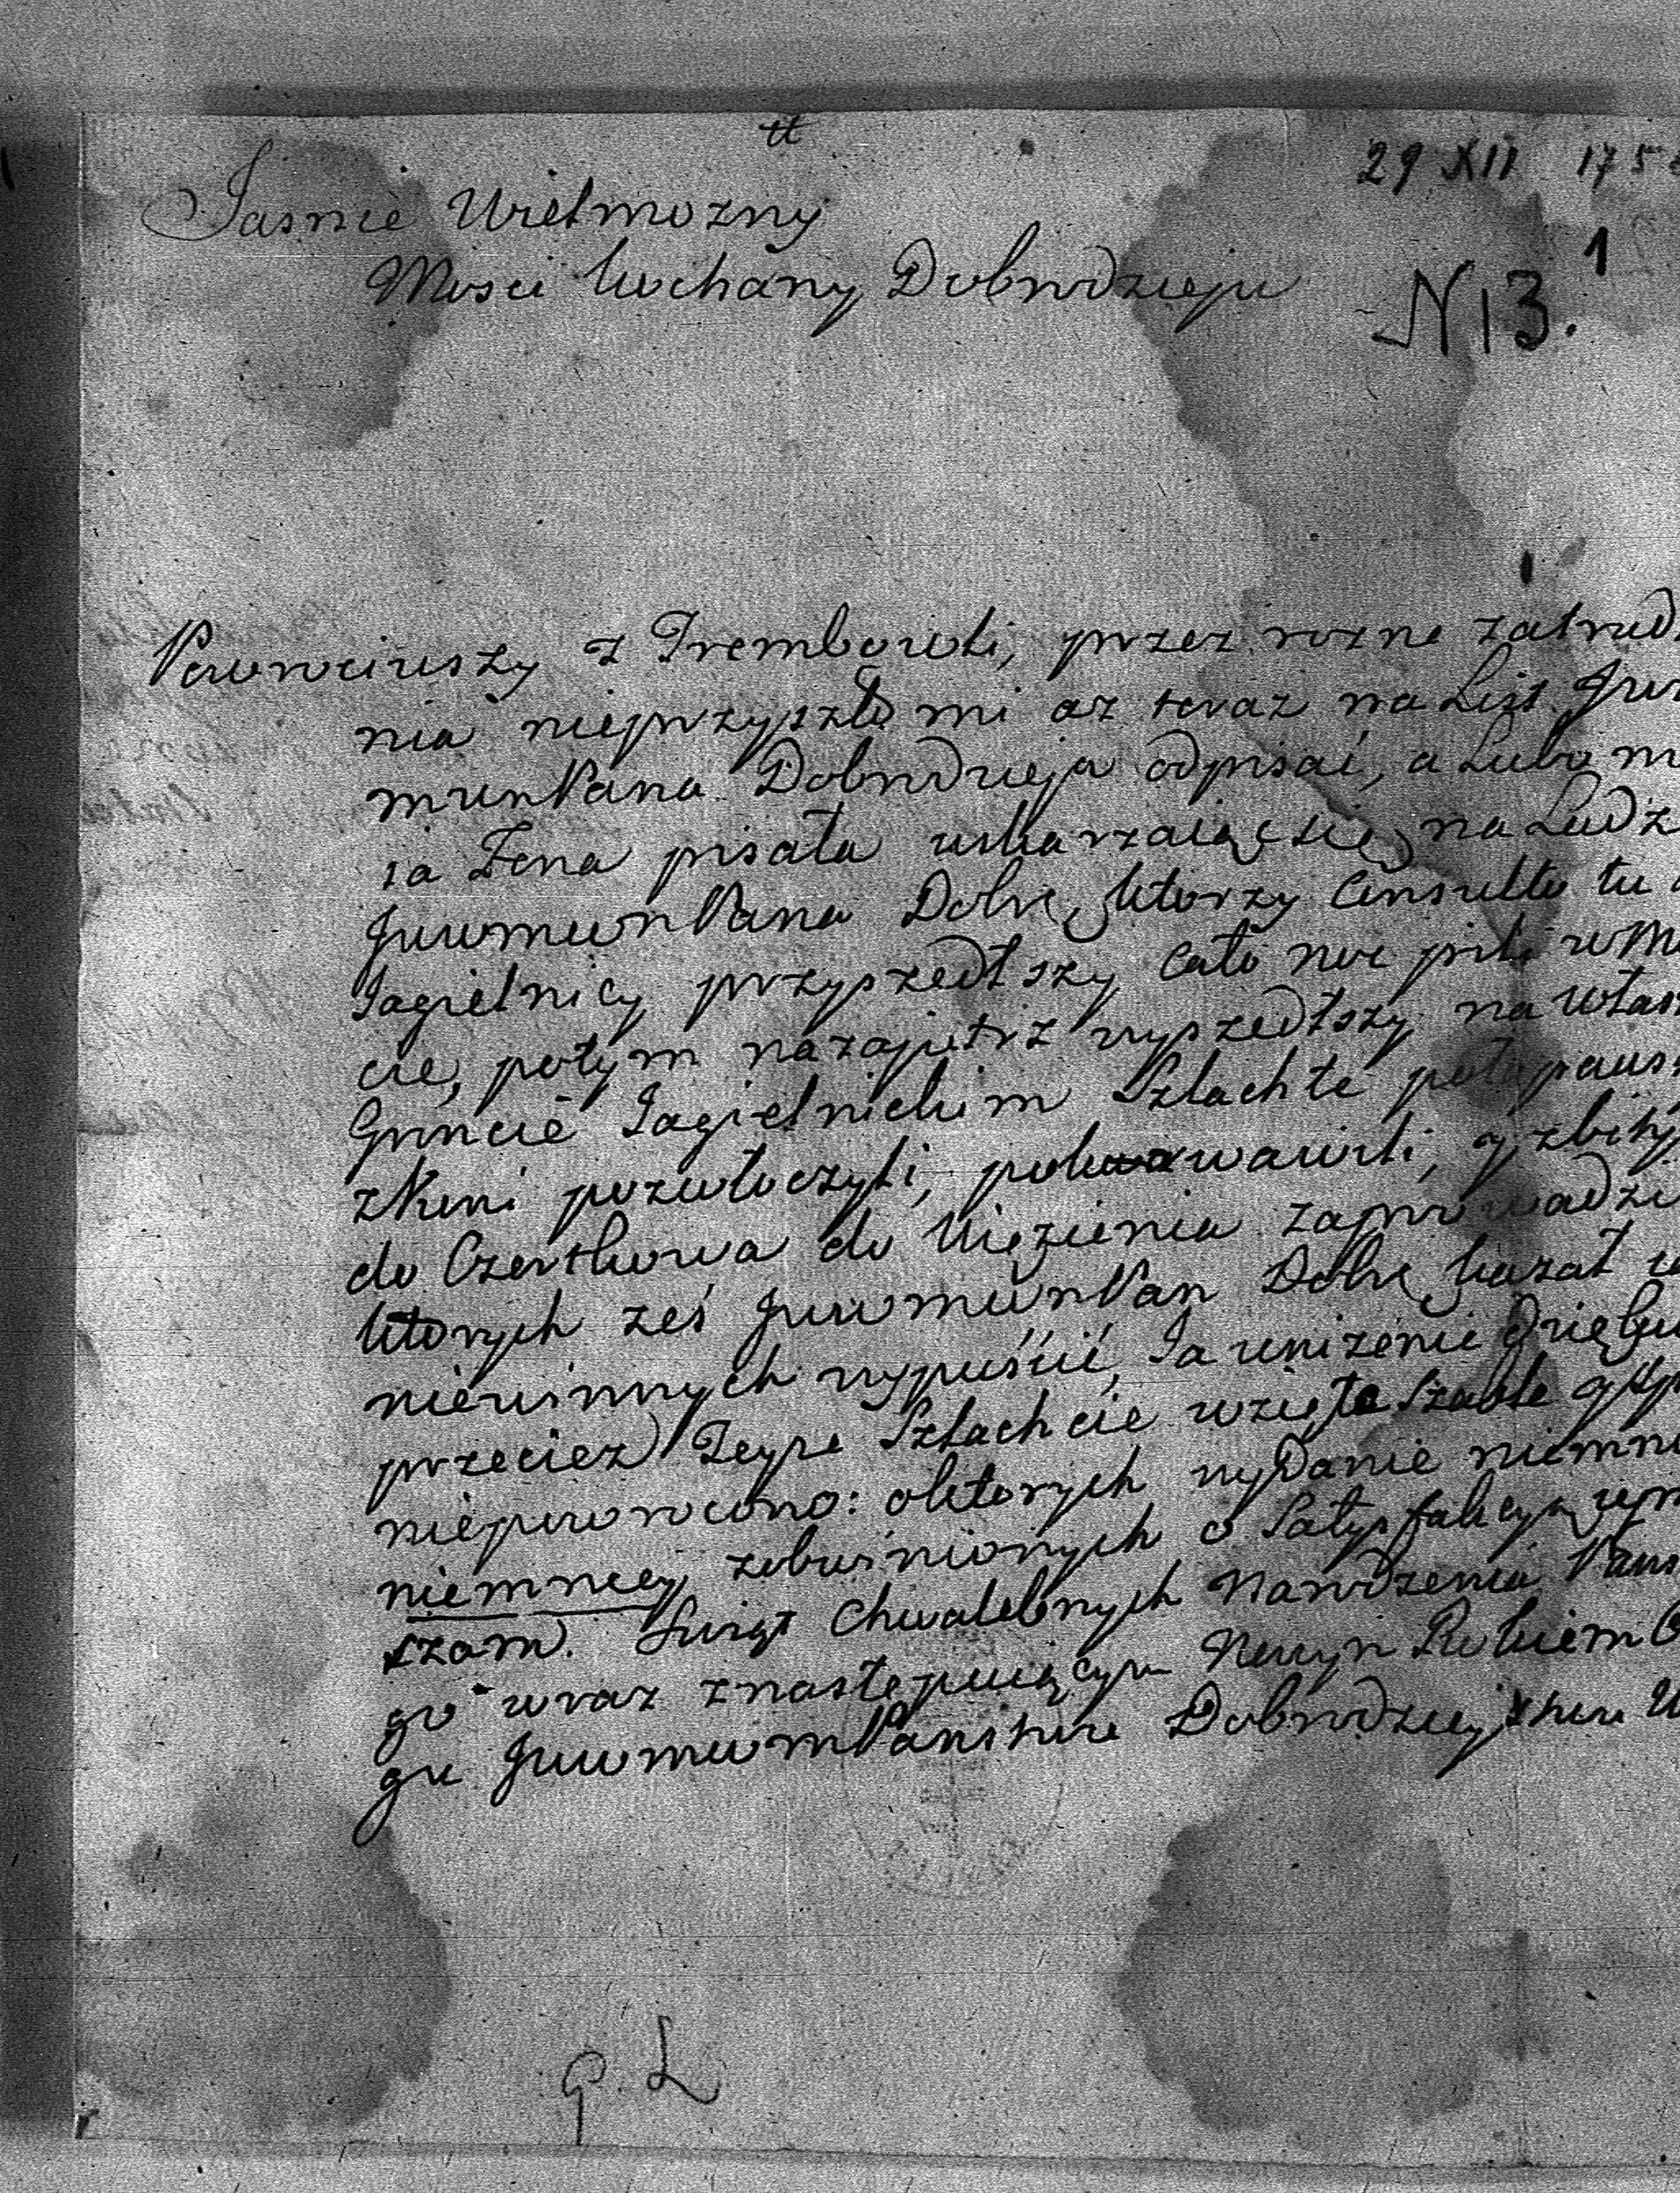 tt
29 XII 175
Jasnie Wielmozny
1
Mosci kochany Dobrodzieju
N 13.
Powrociwszy z Trembowli, przez rozne zatrud
nia nieprzyszło mi az teraz na List Jww
mumPana Dobrodzieja odpisać, a Lubo m
ia Zona pisała uskarzaiąc się na Ludz
JwwmumPana Dobr. ktorzy Consulto tu
Jagielnicy przyszedłszy Cało noc pili w M
cie, potym nazajutrz wyszedłszy na włas
Gruncie Jagielnickim Szlachte
zKoni pozwłoczyli, y zbity
do Czortkowa do Więzienia zaprowadzi
ktorych zes JwwmumPan Dobr. kazał
niewinnych wypuścić, Ja unizenie Dzięku
przeciez Teyze Szlachcie wzięte Szable y
niepowrocono: oktorych wydanie niemni
niemniey o Satysfakcyą upr
szam. Swiąt Chwalebnych Narodzenia Pans
go wraz znastępuiącym Nowym Rokiem
gu Dobrodziejstwu
g. L